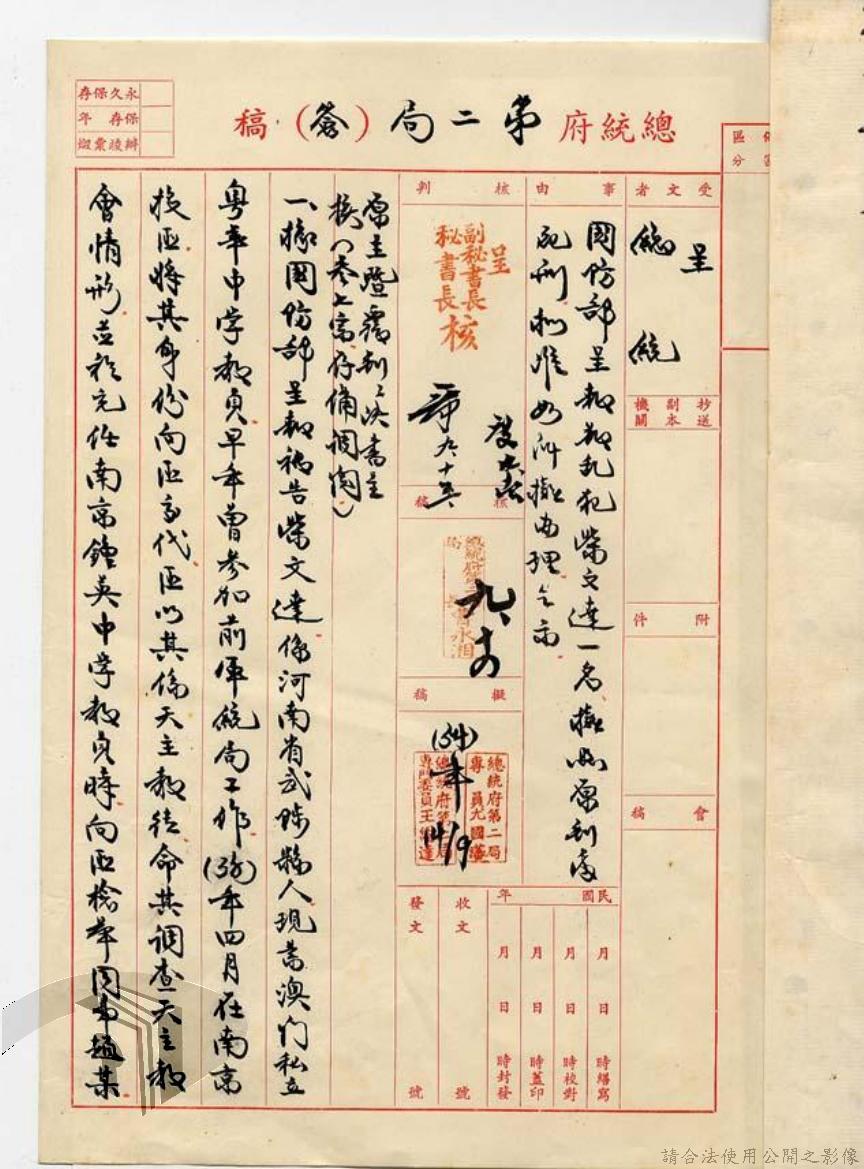 總統府第二局（簽）稿
永久保存
保存 年
區分
受文者
呈
總統
抄送副本機關
附件
會稿
事由
國防部呈報叛亂犯柴文達一名擬照原判處
死刑擬准如所擬辦理乞示
核判
呈
副秘書長
秘書長 核
核稿
九
擬稿
(54)年 14/9
總統府第二局
專員
總統府第二局
專門委員王
民國 年
月 日 時繕寫
月 日 時校對
月 日 時蓋印
月 日 時封發
收文 號
發文 號
一、據國防部呈報被告柴文達係河南省武陟縣人現為澳門私立
粵華中學教員早年曾參加前軍統局工作(38)年四月在南京
投匪將其身份向匪交代匪以其係天主教徒命其調查天主教
會情形並於充任南京鍾英中學教員時向匪檢舉同事趙某
請合法使用公開之影像